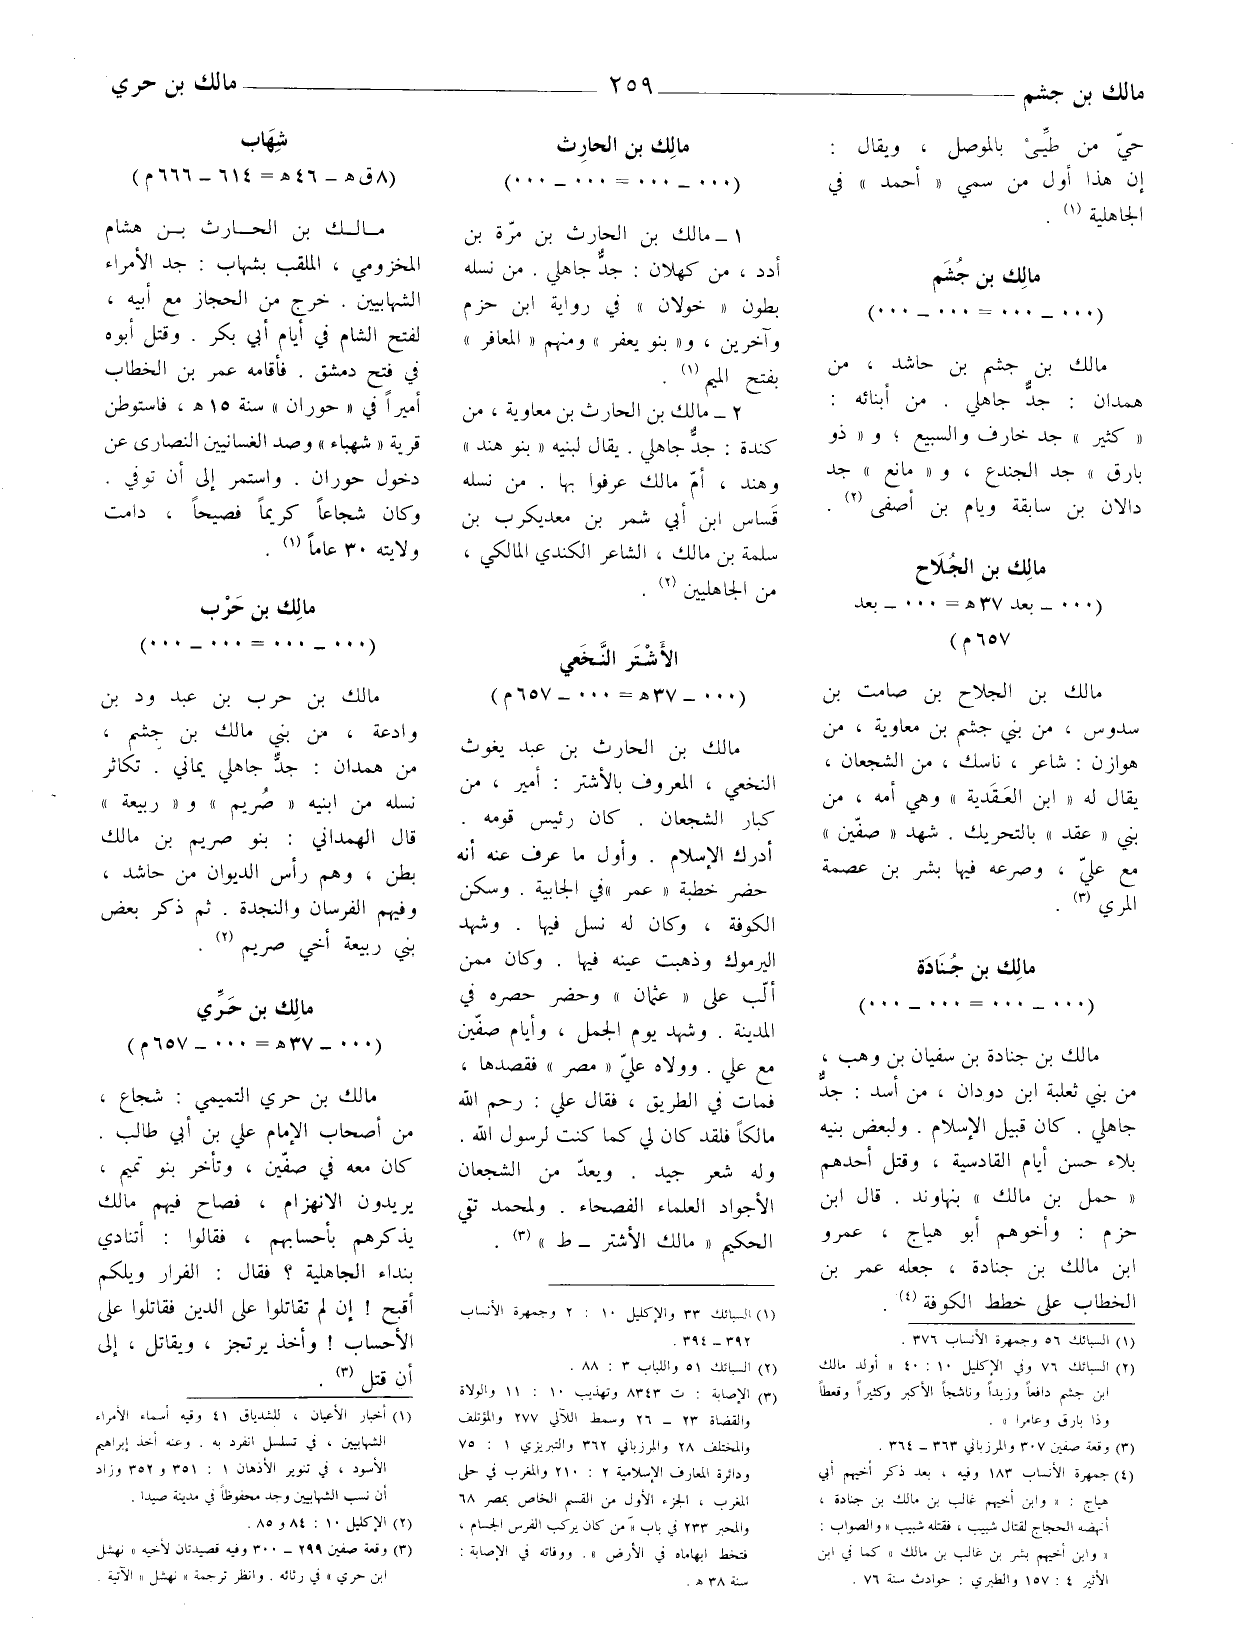 مالك بن جشم
٢٥٩
مالك بن حري
حيّ من طيِّئ بالموصل ، ويقال :
إن هذا أول من سمي « أحمد » في
الجاهلية (١) .
مالِك بن جُشَم
(٠٠٠ ـ ٠٠٠ = ٠٠٠ ـ ٠٠٠)
مالك بن جشم بن حاشد ، من
همدان : جدٌّ جاهلي . من أبنائه :
« كثير » جد خارف والسبيع ؛ و « ذو
بارق » جد الجندع ، و « مانع » جد
دالان بن سابقة ويام بن أصفى (٢) .
مالِك بن الجُلَاح
(٠٠٠ ـ بعد ٣٧ هـ = ٠٠٠ ـ بعد
٦٥٧ م)
مالك بن الجلاح بن صامت بن
سدوس ، من بني جشم بن معاوية ، من
هوازن : شاعر ، ناسك ، من الشجعان ،
يقال له « ابن العَقَدية » وهي أمه ، من
بني « عقد » بالتحريك . شهد « صفّين »
مع عليّ ، وصرعه فيها بشر بن عصمة
المري (٣) .
مالِك بن جُنَادَة
(٠٠٠ ـ ٠٠٠ = ٠٠٠ ـ ٠٠٠)
مالك بن جنادة بن سفيان بن وهب ،
من بني ثعلبة ابن دودان ، من أسد : جدٌّ
جاهلي . كان قبيل الإسلام . ولبعض بنيه
بلاء حسن أيام القادسية ، وقتل أحدهم
« حمل بن مالك » بنهاوند . قال ابن
حزم : وأخوهم أبو هياج ، عمرو
ابن مالك بن جنادة ، جعله عمر بن
الخطاب على خطط الكوفة (٤) .
(١) السبائك ٥٦ وجمهرة الأنساب ٣٧٦ .
(٢) السبائك ٧٦ وفي الإكليل ١٠ : ٤٠ « أولد مالك
ابن جشم دافعاً وزيداً وناشجاً الأكبر وكثيراً وقعطاً
وذا بارق وعامرا » .
(٣) وقعة صفين ٣٠٧ والمرزباني ٣٦٣ ـ ٣٦٤ .
(٤) جمهرة الأنساب ١٨٣ وفيه ، بعد ذكر أخيهم أبي
هياج : « وابن أخيهم غالب بن مالك بن جنادة ،
أنهضه الحجاج لقتال شبيب ، فقتله شبيب » والصواب :
« وابن أخيهم بشر بن غالب بن مالك » كما في ابن
الأثير ٤ : ١٥٧ والطبري : حوادث سنة ٧٦ .
مالِك بن الحارِث
(٠٠٠ ـ ٠٠٠ = ٠٠٠ ـ ٠٠٠)
١ ـ مالك بن الحارث بن مرّة بن
أدد ، من كهلان : جدٌّ جاهلي . من نسله
بطون « خولان » في رواية ابن حزم
وآخرين ، و« بنو يعفر » ومنهم « المعافر »
بفتح الميم (١) .
٢ ـ مالك بن الحارث بن معاوية ، من
كندة : جدٌّ جاهلي . يقال لبنيه « بنو هند »
وهند ، أمّ مالك عرفوا بها . من نسله
قَساس ابن أبي شمر بن معديكرب بن
سلمة بن مالك ، الشاعر الكندي المالكي ،
من الجاهليين (٢) .
الأَشْتَر النَّخَعي
(٠٠٠ ـ ٣٧ هـ = ٠٠٠ ـ ٦٥٧ م)
مالك بن الحارث بن عبد يغوث
النخعي ، المعروف بالأشتر : أمير ، من
كبار الشجعان . كان رئيس قومه .
أدرك الإسلام . وأول ما عرف عنه أنه
حضر خطبة « عمر » في الجابية . وسكن
الكوفة ، وكان له نسل فيها . وشهد
اليرموك وذهبت عينه فيها . وكان ممن
ألّب على « عثمان » وحضر حصره في
المدينة . وشهد يوم الجمل ، وأيام صفّين
مع علي . وولاه عليّ « مصر » فقصدها ،
فمات في الطريق ، فقال علي : رحم الله
مالكاً فلقد كان لي كما كنت لرسول الله .
وله شعر جيد . ويعدّ من الشجعان
الأجواد العلماء الفصحاء . ولمحمد تقي
الحكيم « مالك الأشتر ـ ط » (٣) .
(١) السبائك ٣٣ والإكليل ١٠ : ٢ وجمهرة الأنساب
٣٩٢ ـ ٣٩٤ .
(٢) السبائك ٥١ واللباب ٣ : ٨٨ .
(٣) الإصابة : ت ٨٣٤٣ وتهذيب ١٠ : ١١ والولاة
والقضاة ٢٣ ـ ٢٦ وسمط اللآلي ٢٧٧ والمؤتلف
والمختلف ٢٨ والمرزباني ٣٦٢ والتبريزي ١ : ٧٥
ودائرة المعارف الإسلامية ٢ : ٢١٠ والمغرب في حلى
المغرب ، الجزء الأول من القسم الخاص بمصر ٦٨
والمحبر ٢٣٣ في باب « من كان يركب الفرس الجسام ،
فتخط إبهاماه في الأرض » . ووفاته في الإصابة :
سنة ٣٨ هـ .
شِهَاب
(٨ ق هـ ـ ٤٦ هـ = ٦١٤ ـ ٦٦٦ م)
مالك بن الحارث بن هشام
المخزومي ، الملقب بشهاب : جد الأمراء
الشهابيين . خرج من الحجاز مع أبيه ،
لفتح الشام في أيام أبي بكر . وقتل أبوه
في فتح دمشق . فأقامه عمر بن الخطاب
أميراً في « حوران » سنة ١٥ هـ ، فاستوطن
قرية « شهباء » وصد الغسانيين النصارى عن
دخول حوران . واستمر إلى أن توفي .
وكان شجاعاً كريماً فصيحاً ، دامت
ولايته ٣٠ عاماً (١) .
مالِك بن حَرْب
(٠٠٠ ـ ٠٠٠ = ٠٠٠ ـ ٠٠٠)
مالك بن حرب بن عبد ود بن
وادعة ، من بني مالك بن جشم ،
من همدان : جدٌّ جاهلي يماني . تكاثر
نسله من ابنيه « صُريم » و « ربيعة »
قال الهمداني : بنو صريم بن مالك
بطن ، وهم رأس الديوان من حاشد ،
وفيهم الفرسان والنجدة . ثم ذكر بعض
بني ربيعة أخي صريم (٢) .
مالِك بن حَرِّي
(٠٠٠ ـ ٣٧ هـ = ٠٠٠ ـ ٦٥٧ م)
مالك بن حري التميمي : شجاع ،
من أصحاب الإمام علي بن أبي طالب .
كان معه في صفّين ، وتأخر بنو تميم ،
يريدون الانهزام ، فصاح فيهم مالك
يذكرهم بأحسابهم ، فقالوا : أتنادي
بنداء الجاهلية ؟ فقال : الفرار ويلكم
أقبح ! إن لم تقاتلوا على الدين فقاتلوا على
الأحساب ! وأخذ يرتجز ، ويقاتل ، إلى
أن قتل (٣) .
(١) أخبار الأعيان ، للشدياق ٤١ وفيه أسماء الأمراء
الشهابيين ، في تسلسل انفرد به . وعنه أخذ إبراهيم
الأسود ، في تنوير الأذهان ١ : ٣٥١ و ٣٥٢ وزاد
أن نسب الشهابيين وجد محفوظاً في مدينة صيدا .
(٢) الإكليل ١٠ : ٨٤ و ٨٥ .
(٣) وقعة صفين ٢٩٩ ـ ٣٠٠ وفيه قصيدتان لأخيه « نهشل
ابن حري » في رثائه . وانظر ترجمة « نهشل » الآتية .